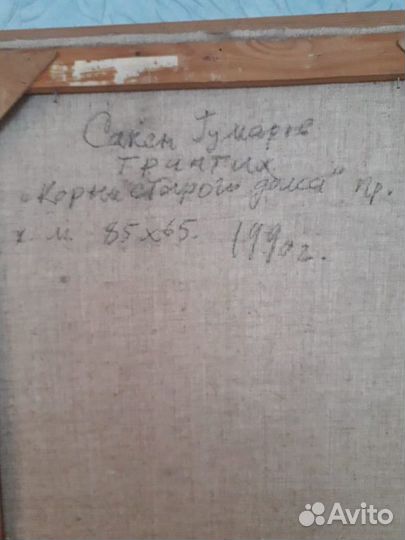 Сакен Гумаров
триптих
„Корни старого дома" пр.
х. м. 85х65. 1990г.
Avito